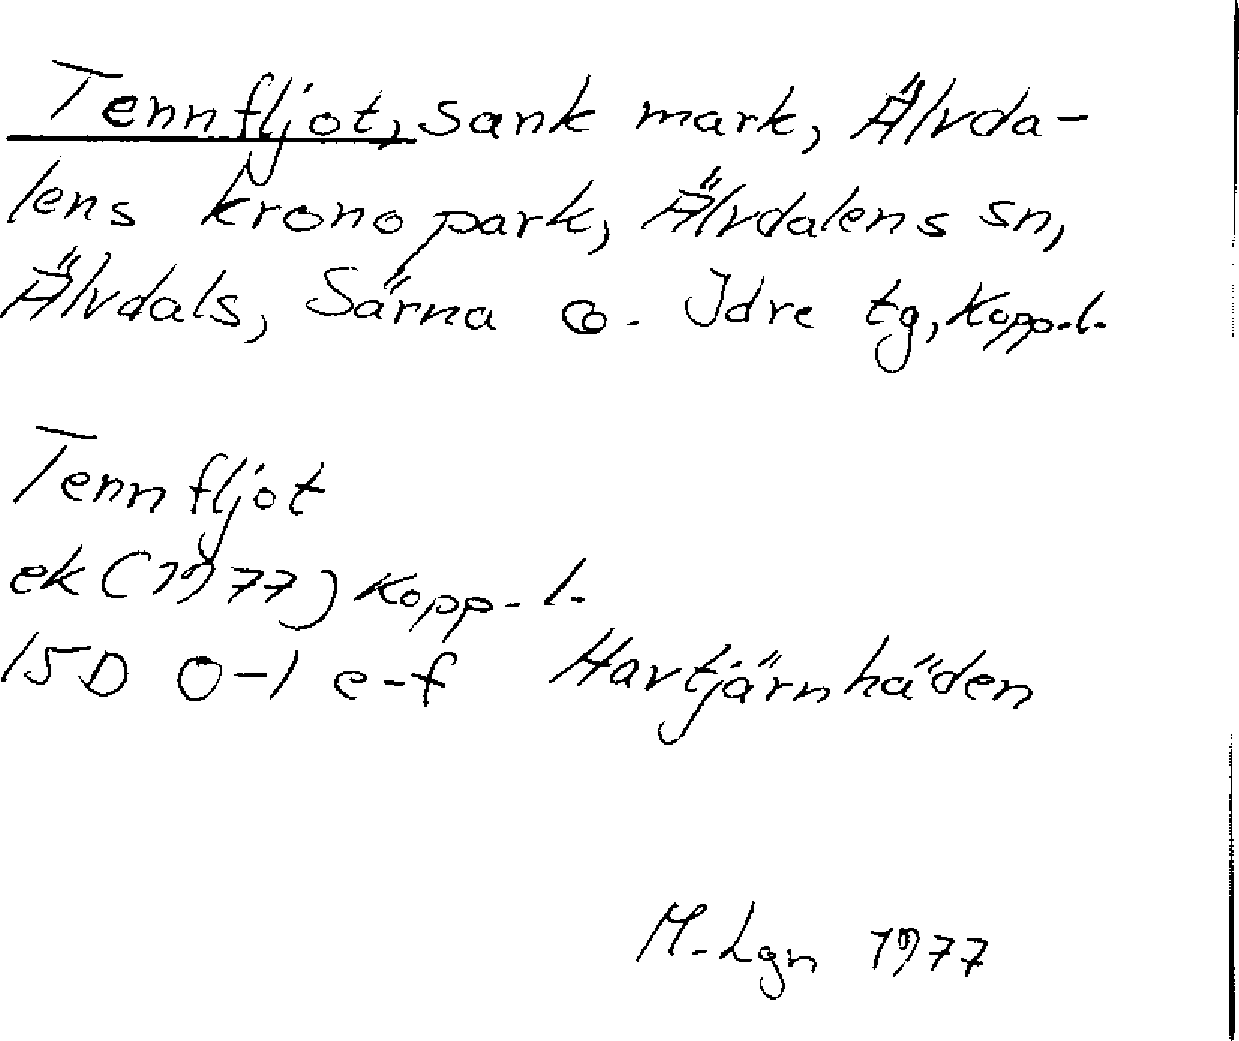 Tennfljot, sank mark, Älvda-
lens kronopark, Älvdalens sn,
Älvdals, Särna o. Idre tg, Kopp.l.
Tennfljot
ek (1977) Kopp. l.
15D 0-1 e-f Hartjärnhäden
M.Lgn 1977